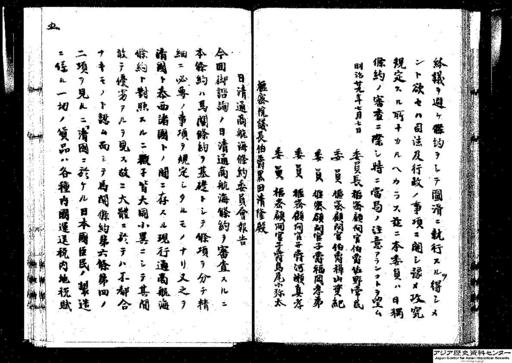 紛議ヲ避ケ條約ヲシテ圓滑ニ執行スルヲ得シメ
ント欲セハ司法及行政ノ事項ニ関シ認メ攻究
規定スル所ナカルヘカラス茲ニ本委員ハ日獨
條約ノ審査ニ際シ特ニ當局ノ注意アランコトヲ望ム
明治廿九年七月七日
委員長 樞密顧問官伯爵佐野常民
委員 樞密顧問官伯爵副島種臣
委員 樞密顧問官子爵河瀬真孝
委員 樞密顧問官子爵福岡孝弟
委員 樞密顧問官子爵鳥尾小弥太
樞密院議長伯爵黒田清隆殿
日清通商航海條約委員會報告
今回御諮詢ノ日清通商航海條約ヲ審査スルニ
本條約ハ馬關條約ヲ基礎トシテ條項ヲ分チ精
細ニ必要ノ事項ヲ規定シタルモノナリ又之ヲ
清國ト泰西諸國トノ間ニ存スル現行通商航海
條約ト對照スルニ概子皆大同小異ニシテ其間
敢テ優劣アルヲ見ス故ニ大體ニ於テハ不都合
ナキモノト認ム而シテ馬關條約第六條第四ノ
二項ヲ見ルニ清國ニ於ケル日本國臣民ノ製造
ニ係ル一切ノ貨品ハ各種内國運送税内地税賦
五
アジア歴史資料センター
Japan Center for Asian Historical Records